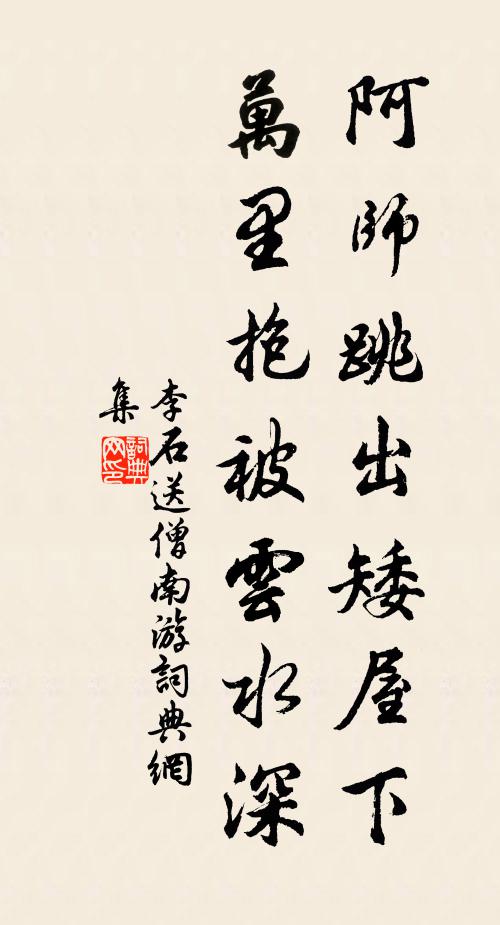 阿師跳出矮屋下
萬里抱被雲水深
李石送僧南游詞典網
集
詞典網印